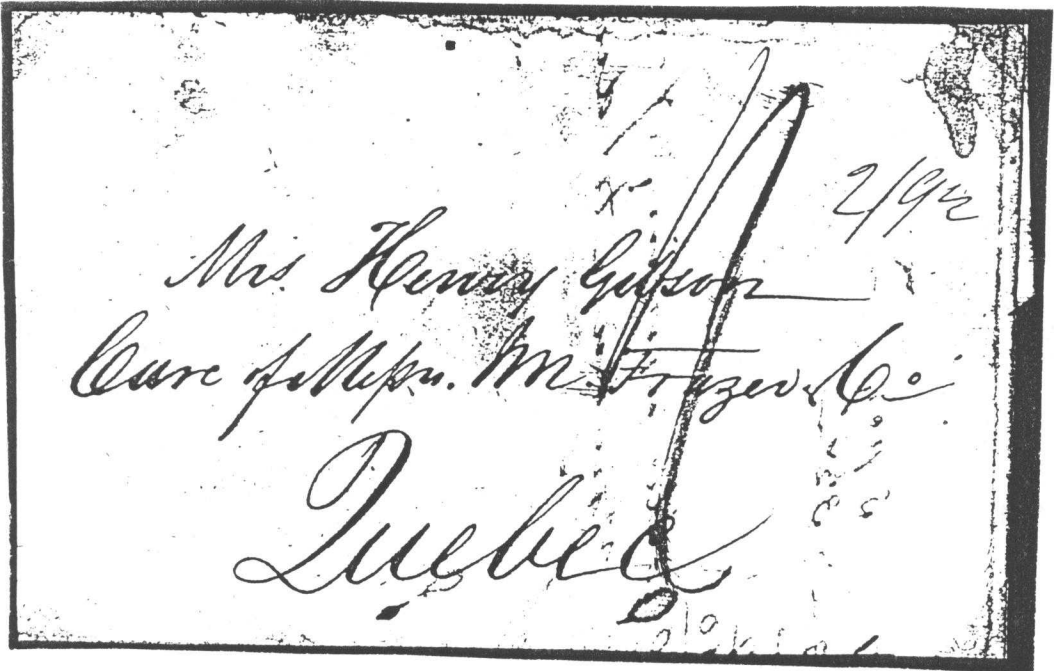 2/9½
Mrs. Henry Gibson
Care of Messrs. Wm. Frazer & Co
Quebec